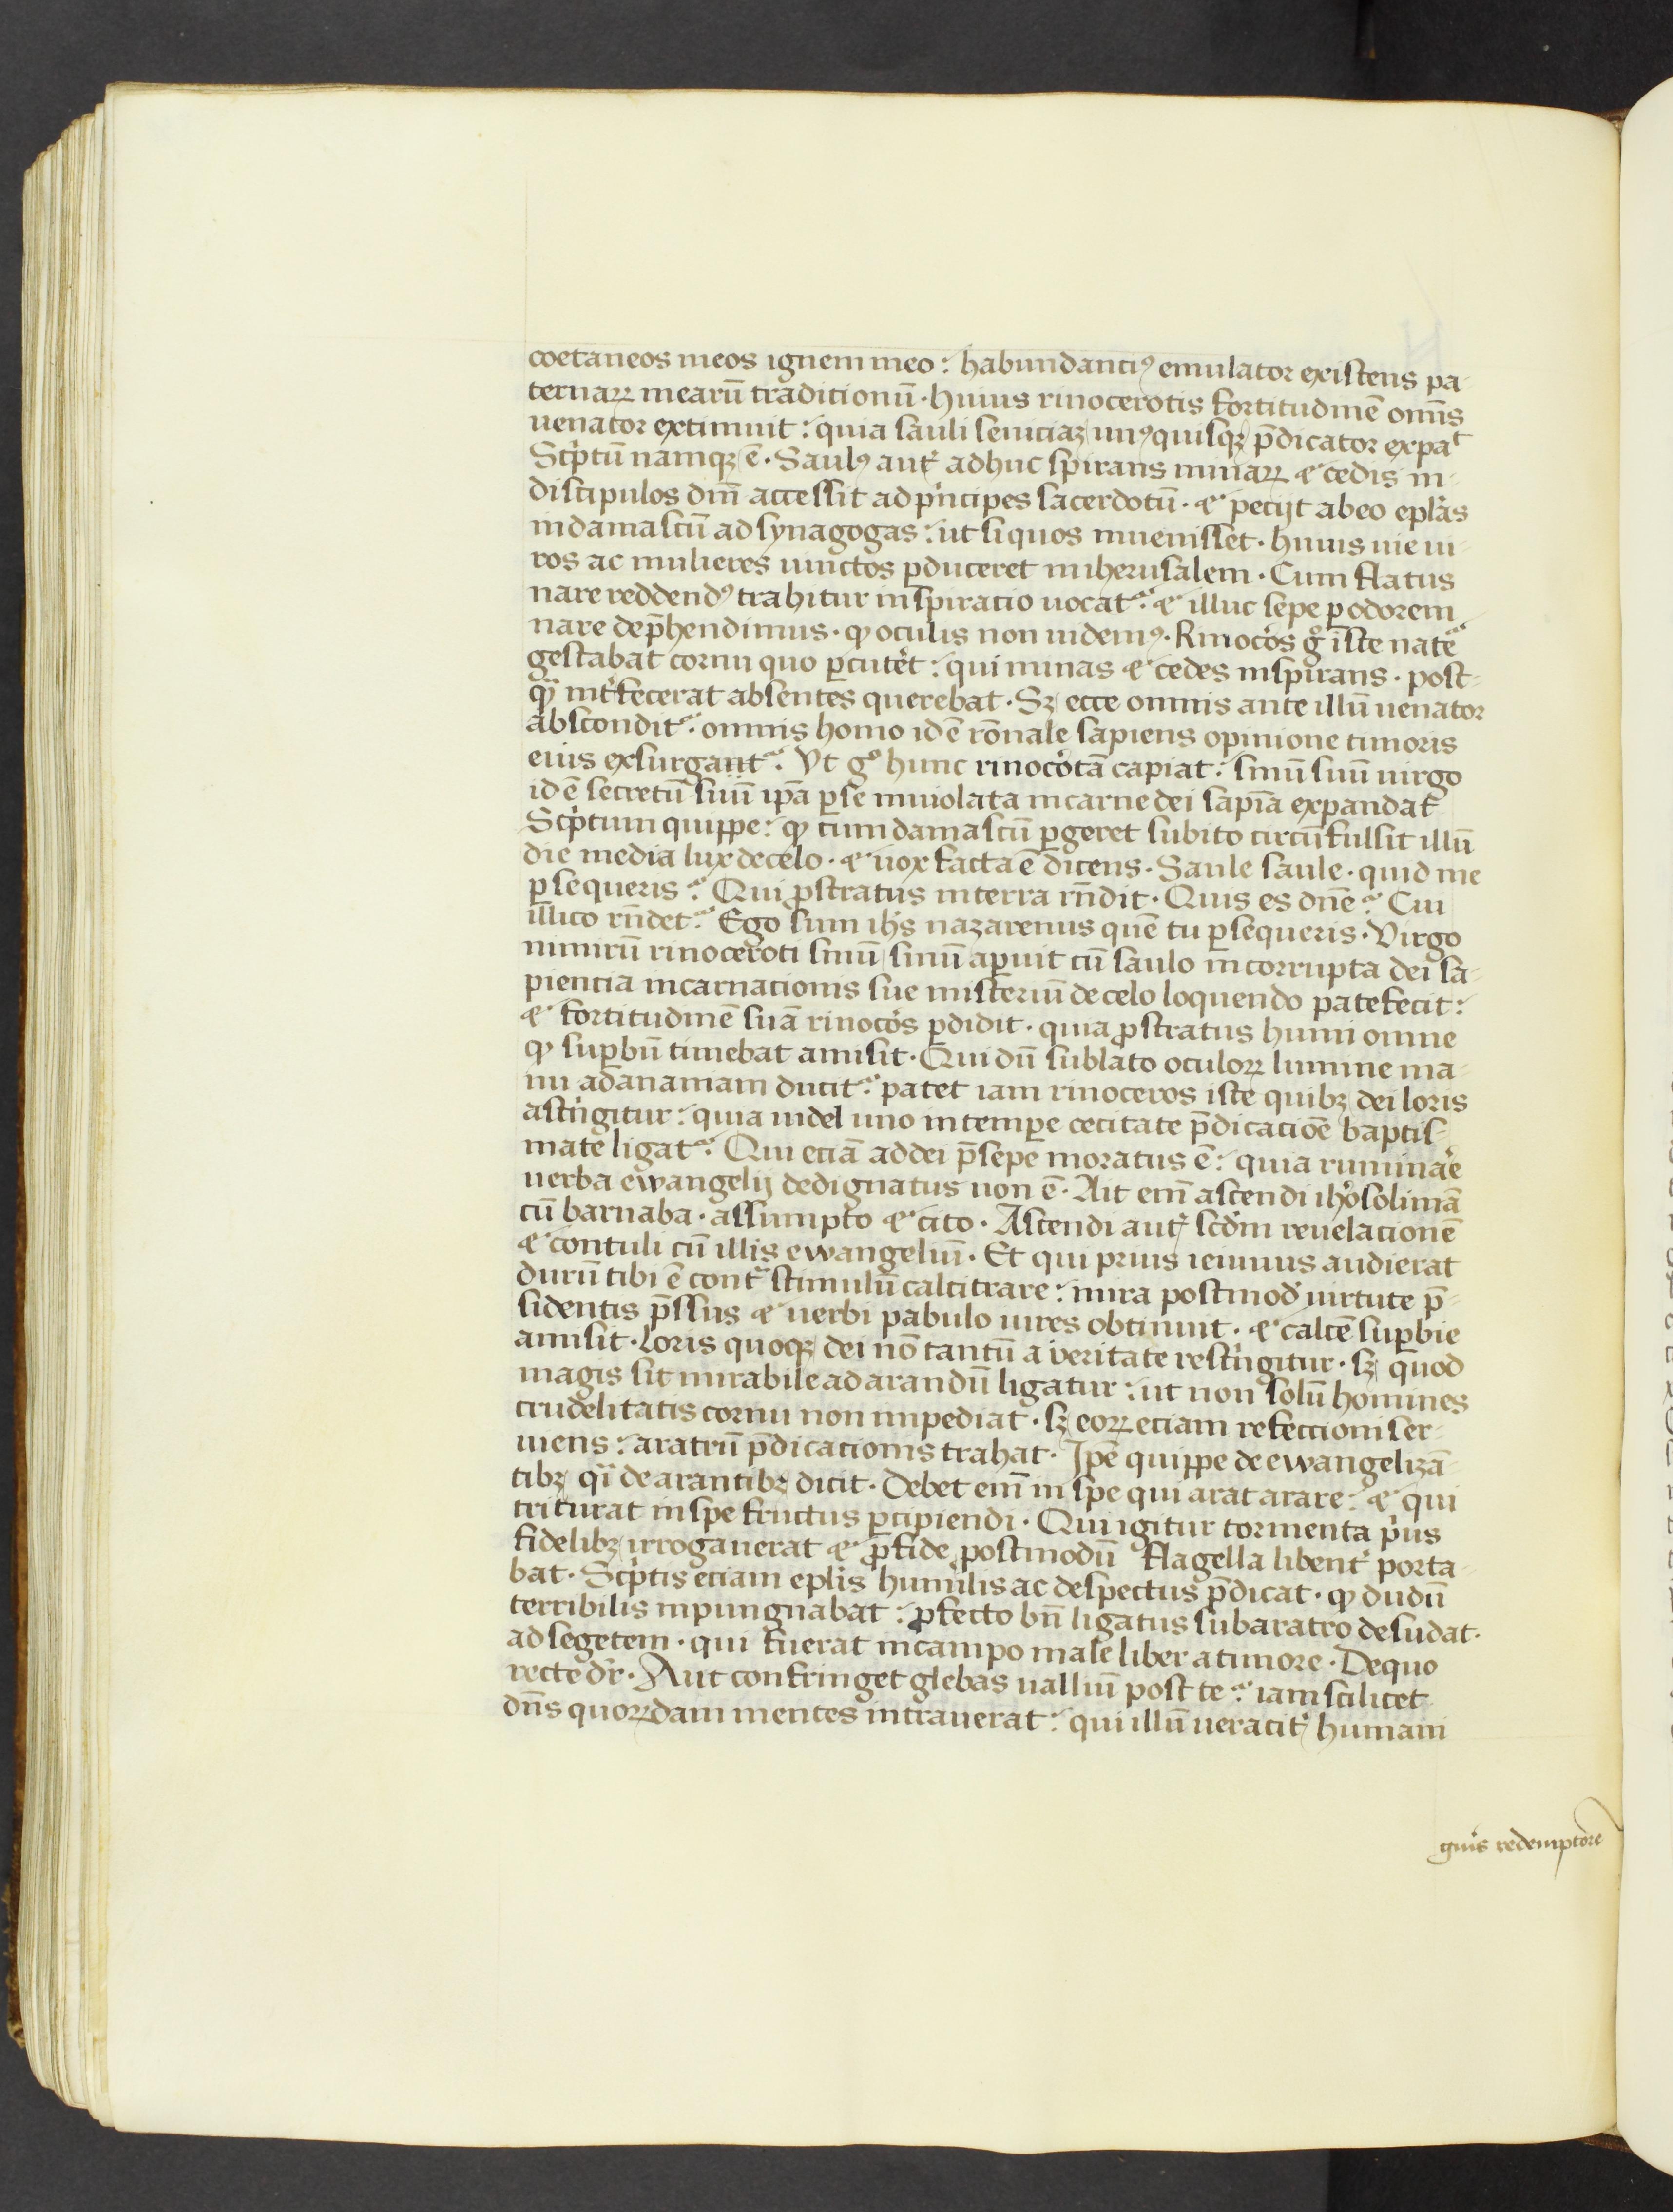 coetaneos meos ignem meo : habundanciꝰ emulator existens pa-
ternaꝝ mearū tradicionū · huius rinocerotis fortitudinē omīs
uenator extimuit : quia sauli seuiciaꝫ unꝰquisqꝫ p̄dicator expa͛t
Sc͛ptū namqꝫ ē · Saulꝰ aut͛ adhuc spirans minaꝝ ⁊ cedis in-
discipulos dn̄i accessit ad p͛ncipes sacerdotū · ⁊ pecijt ab eo epl͛as
in damascū ad synagogas : ut si quos inuenisset · huius uie ui-
ros ac mulieres uinctos ꝑduceret in iherusalem · Cum flatus
nare reddendꝰ trahitur inspiracio uocat᷑ : ⁊ illuc sepe ꝑ odorem
nare dep̄hendimus · qͦ oculis non uidemꝰ · Rinoco͛s gͦ iste nate
gestabat cornu quo ꝑcute͛t : qui minas ⁊ cedes inspirans · post-
qᷓ int͛fecerat absentes querebat · Sꝫ ecce omnis ante illū uenator
abscondit᷑ : omnis homo id ē rōnale sapiens opinione timoris
eius exsurgant᷑ : Vt gͦ hunc rinoco͛tā capiat : sinū suū uirgo
id ē secretū suū ip̄a ꝑ se inuiolata in carne dei sapīa expandat͛
Sc͛ptum quippe : qͦ cum damascū ꝑgeret subito circūfulsit illū
die media lux de celo · ⁊ uox facta ē dicens · Saule saule · quid me
ꝑsequeris : Qui ꝓstratus in terra rn̄dit · Quis es dn̄e : Cui
illico rn̄det᷑ : Ego sum ih͛s nazarenus quē tu ꝑsequeris · Virgo
nimirū rinoceroti sinū sinū aꝑuit cū saulo incorrupta dei sa-
piencia incarnacionis sue misteriū de celo loquendo patefecit :
⁊ fortitudinē suā rinoco͛s ꝑdidit · quia ꝓstratus humi omne
qͦ suꝑbū timebat amisit · Qui dū sublato oculoꝝ lumine ma-
nu ad ananiam ducit᷑ : patet iam rinoceros iste quibꝫ dei loris
ast͛ngitur : quia uidel uno in tempꝑe cecitate p̄dicatiōe baptis-
mate ligat᷑ : Qui eciā ad dei p̄sepe moratus ē : quia rumina͛e
uerba ewangelij dedignatus non ē · Ait em̄ ascendi ih͛osolimā
cū barnaba · assumpto ⁊ cito · Ascendi aut͛ scd͛m reuelacionē
⁊ contuli cū illis ewangeliū · Et qui prius ieiunus audierat
durū tibi ē contᷓ stimulū calcitrare : mira postmod͛ uirtute p̄-
sidentis p̄ssus ⁊ uerbi pabulo uires obtinuit · ⁊ calcē suꝑbie
amisit · Loris quoqꝫ dei nō tantū a ueritate rest͛ngitur · sꝫ quod
magis sit mirabile ad arandū ligatur : ut non solū homines
crudelitatis cornu non impediat · sꝫ eoꝝ eciam refeccioni ser-
uiens : aratrū p̄dicacionis trahat · Jpē quippe de ewangelizā-
tibꝫ qͥ de arantibꝫ dicit · Debet em̄ in spe qui arat arare : ⁊ qui
triturat in spe fructus ꝑcipiendi · Qui igitur tormenta p͛us
fidelibꝫ irrogauerat ⁊ ꝓ fide postmodū flagella libent͛ porta-
bat · Sc͛ptis eciam epl͛is humilis ac despectus p̄dicat · qͦ dudū
terribilis inpungnabat : ꝓfecto bn̄ ligatus sub aratro desudat ·
ad segetem · qui fuerat in campo male liber a timore · De quo
recte d͛r · Aut confringet glebas ualliū post te : iam scilicet
dn̄s quoꝝdam mentes intrauerat : qui illū ueracit͛ humani
gn͛is redemptorē